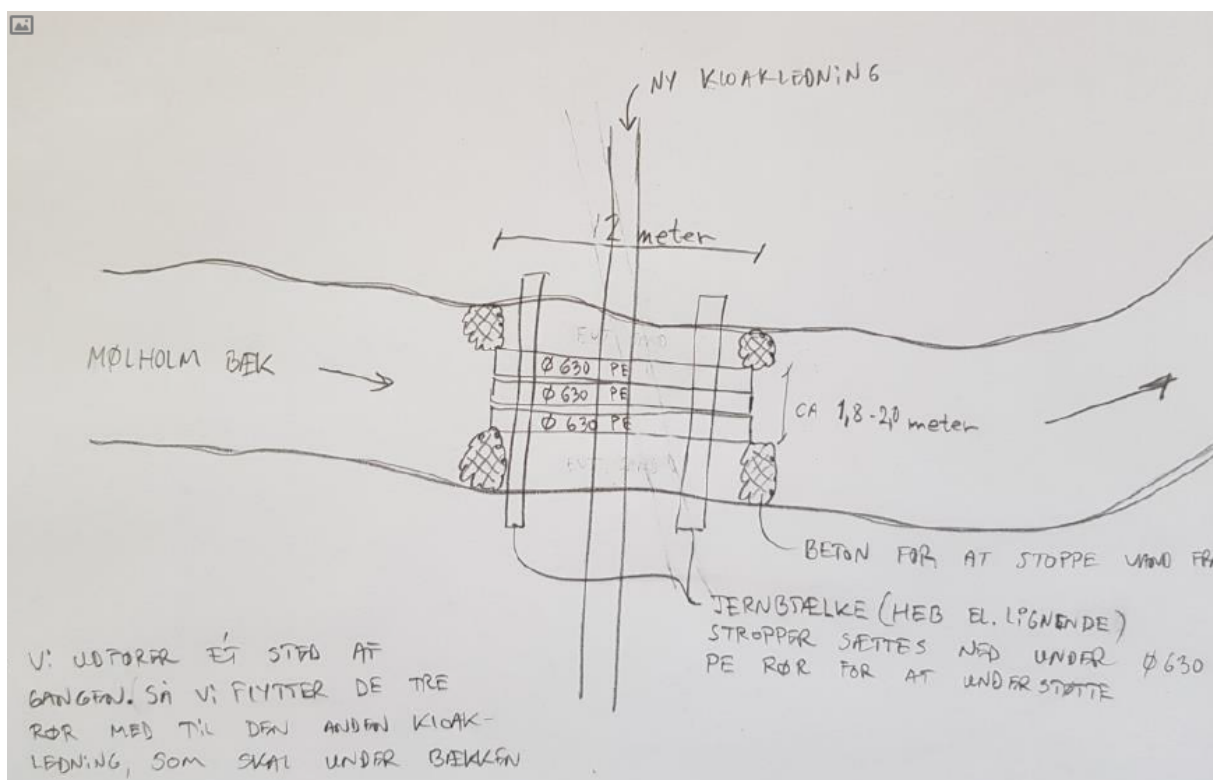 NY KLOAKLEDNING
12 meter
MØLHOLM BÆK
Ø 630 PE
Ø 630 PE
Ø 630 PE
CA 1,8-2,0 meter
BETON FOR AT STOPPE VAND
JERNBJÆLKE (HEB EL. LIGNENDE)
STROPPER SÆTTES NED UNDER Ø 630
PE RØR FOR AT UNDERSTØTTE
Vi UDFØRER ÉT STED AF
GANGEN. SÅ Vi FLYTTER DE TRE
RØR MED TIL DEN ANDEN KLOAK-
LEDNING, SOM SKAL UNDER BÆKKEN